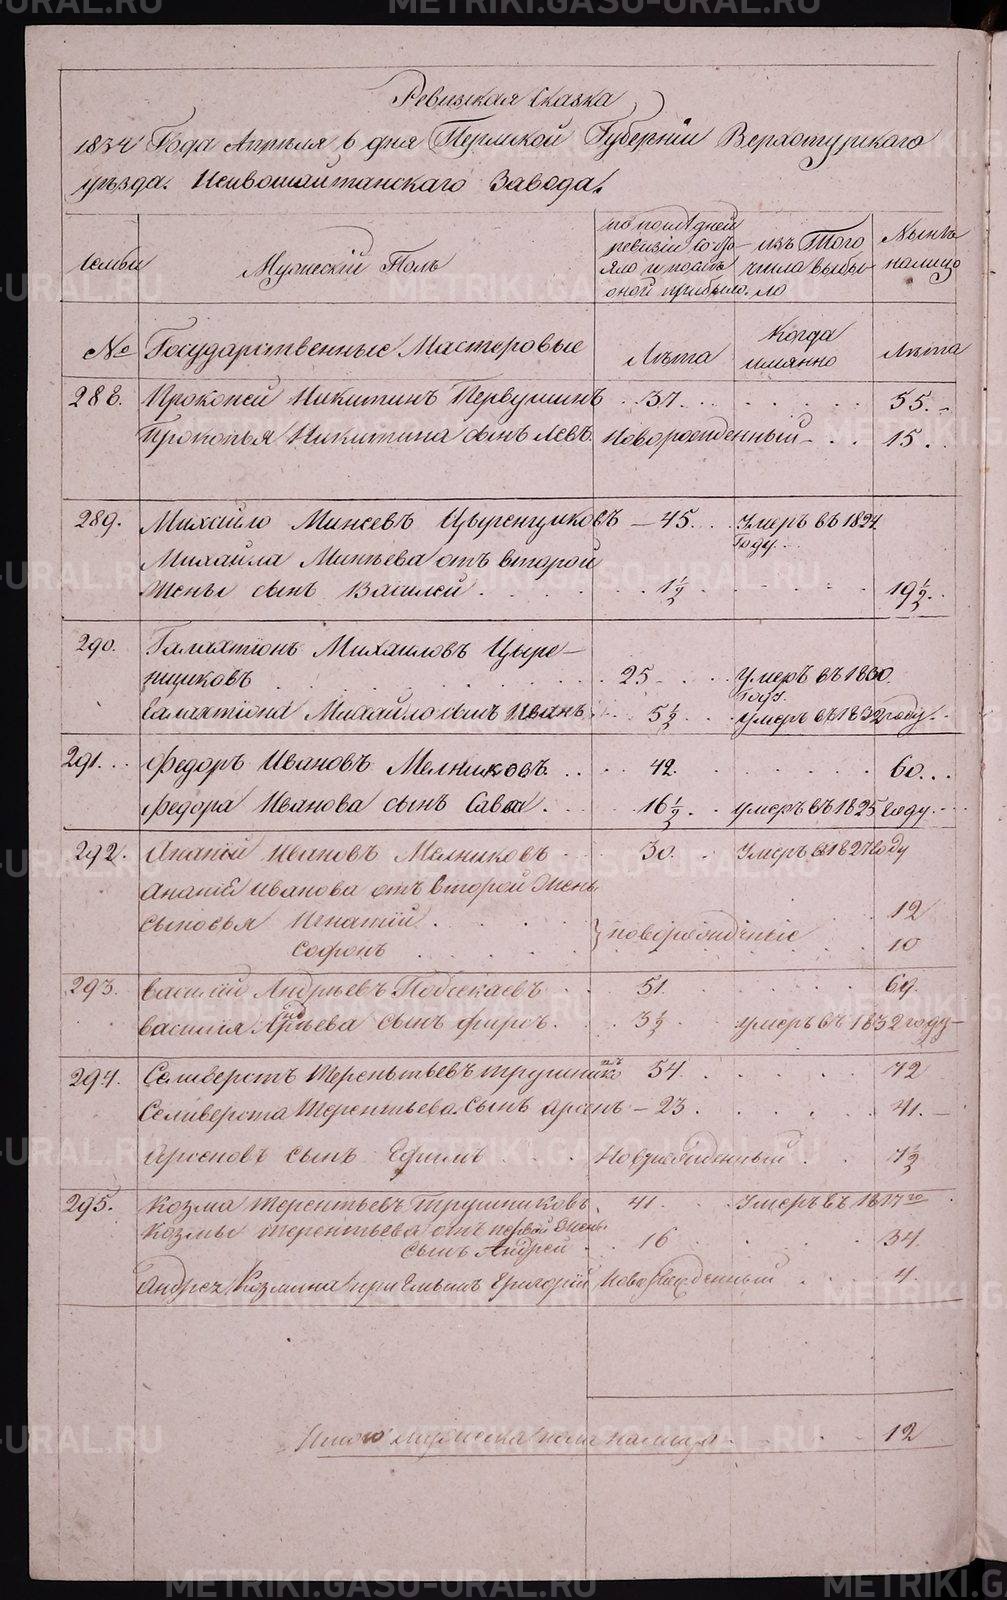 Ревизкая Сказка
1834 Года Апреля 6 дня Пермской Губернiи Верхотурскаго
уѣзда. Нейвошайтанскаго Завода.
Семьи
Мужескiй Полъ
по послѣдней
ревизiи состо-
яло и послѣ
оной прибыло.
изъ Того
числа выбы-
ло
Нынѣ
налицо
№
Государственные Мастеровые
Лѣта
Когда
имянно
Лѣта
288. Прокопей Никитинъ Первушинъ 37. 55.
Прокопья Никитина сынъ Левъ Новорожденный 15.
289. Михайло Минеевъ Цыренщиковъ 45. Умеръ въ 1824
Году
Михайла Минѣева отъ второй
Жены сынъ Василей 1½ 19½
290. Галахтiонъ Михаиловъ Цыре-
нщиковъ 25 Умеръ въ 1830
Году
Галахтiона Михайло сынъ Иванъ 5½ умеръ въ 1832 году
291. Федоръ Ивановъ Мелниковъ 42. 60
Федора Иванова сынъ Савва 16½ умеръ въ 1825 году
292. Ананiй Ивановъ Мелниковъ 30. Умеръ въ 1827 году
Ананiя Иванова отъ второй жены
Сыновья Игнатiй 12
новорожденные
Софонъ 10
293. Василiй Андрѣевъ Побѣжаевъ 51. 69.
Василiя Андрѣева сынъ Фирсъ 3½ умеръ въ 1832 году
294. Селиверстъ Терентьевъ Трушниковъ 54. 72
Селиверста Терентьева Сынъ Аронъ 23. 41.
Ароновъ сынъ Ефимъ Новорожденный 7½
295. Козма Терентьевъ Трушниковъ 41. Умеръ въ 1817 го
Козмы Терентьева отъ первой Жены
сынъ Андрей 16 34.
Андрея Козмина прiемышъ Григорiй Новорожденный 4.
Итого мужеска пола налицо 12
METRIKI.GASO-URAL.RU